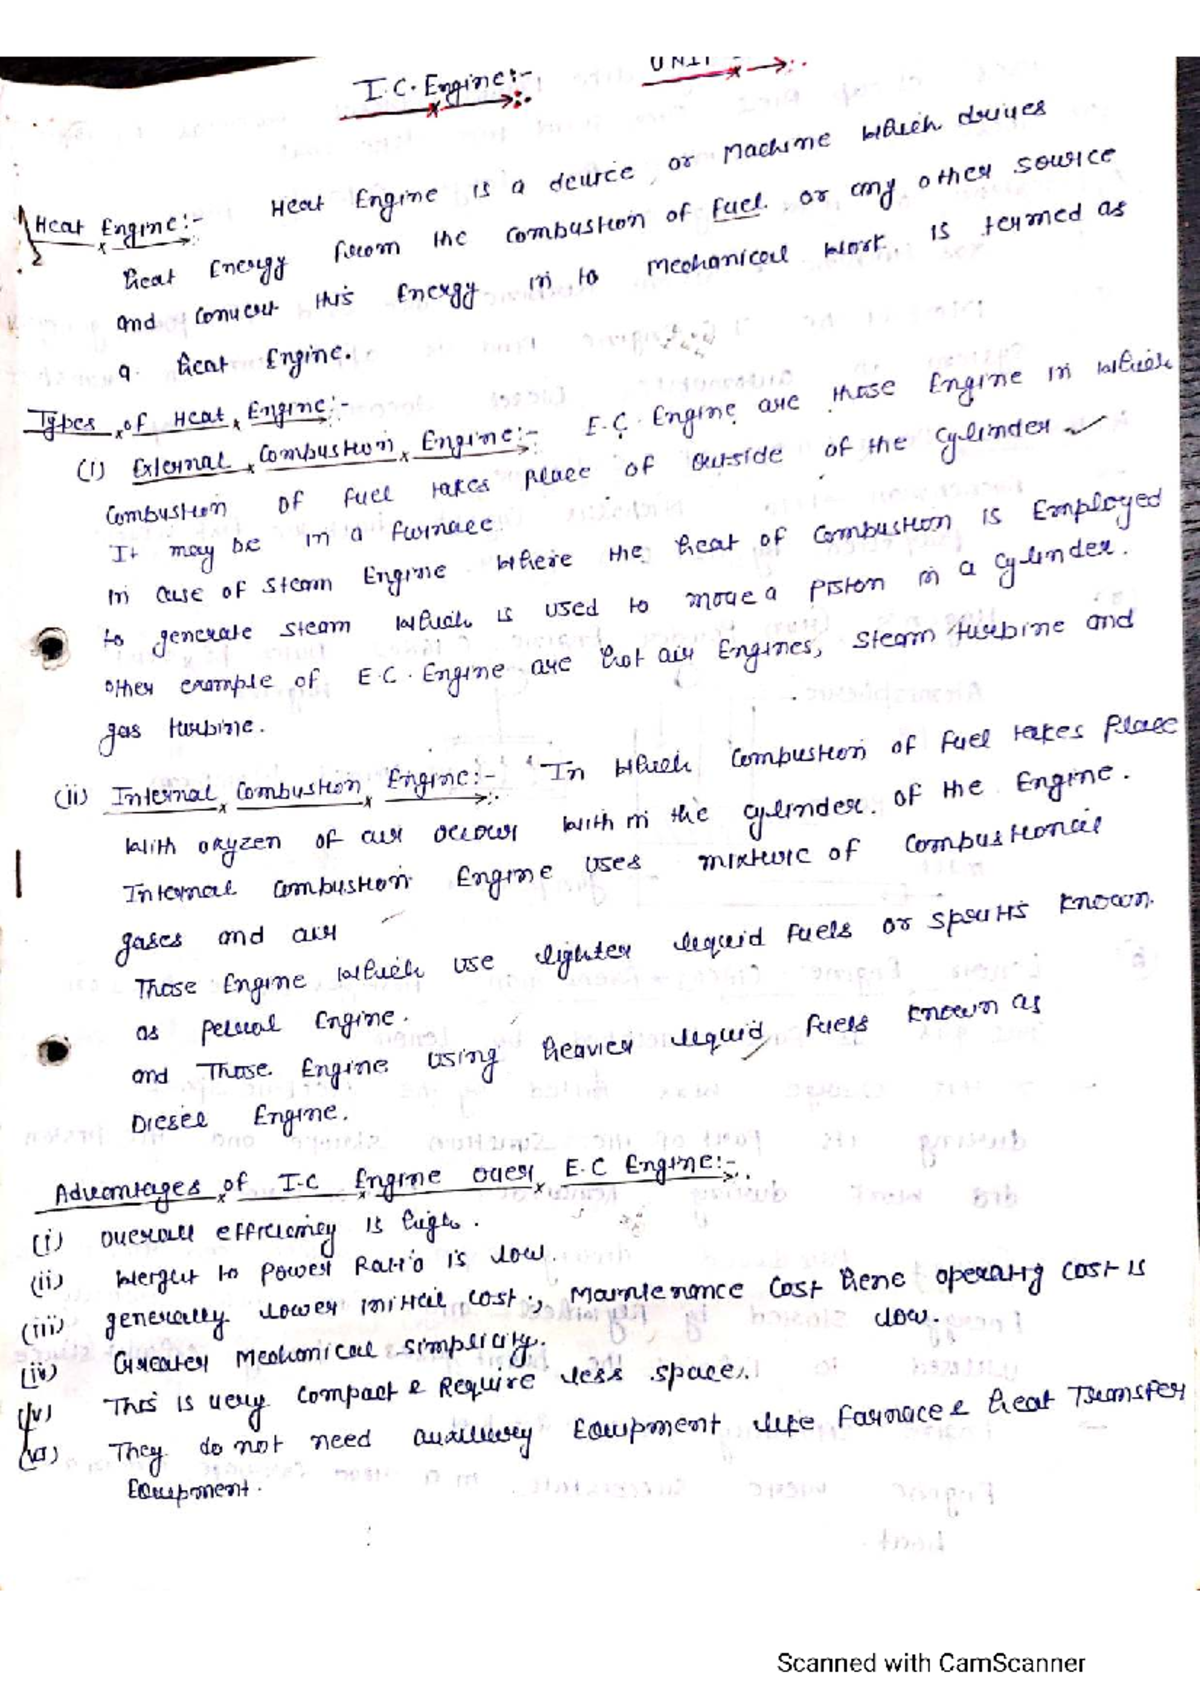 I.C. Engine:-
UNIT -
Heat Engine:- Heat Engine is a device or Machine which drives
heat Energy from the combustion of fuel or any other source
and convert this Energy in to mechanical work is termed as
a heat Engine.
Types of Heat Engine:-
(i) External Combustion Engine:- E.C. Engine are those Engine in which
combustion of fuel takes place of outside of the cylinder
It may be in a furnace.
in case of steam Engine where the heat of combustion is Employed
to generate steam which is used to move a piston in a cylinder.
other example of E.C. Engine are hot air Engines, steam turbine and
gas turbine.
(ii) Internal Combustion Engine:- In which combustion of fuel takes place
with oxyzen of air occour with in the cylinder of the Engine.
Internal combustion Engine uses mixture of combustional
gases and air
Those Engine which use lighter liquid fuels or spirits known
as petrol Engine.
and Those Engine using heavier liquid fuels known as
Diesel Engine.
Advantages of I.C Engine over E.C Engine:-
(i) overall efficiency is high.
(ii) Weight to power Ratio is low.
(iii) generally lower initial cost, Maintenance cost hene operating cost is
low.
(iv) Greater mechanical simplicity.
(v) This is very compact & Require less space.
(vi) They do not need auxiliary Equipment like Farnace & heat Transfer
Equipment.
Scanned with CamScanner